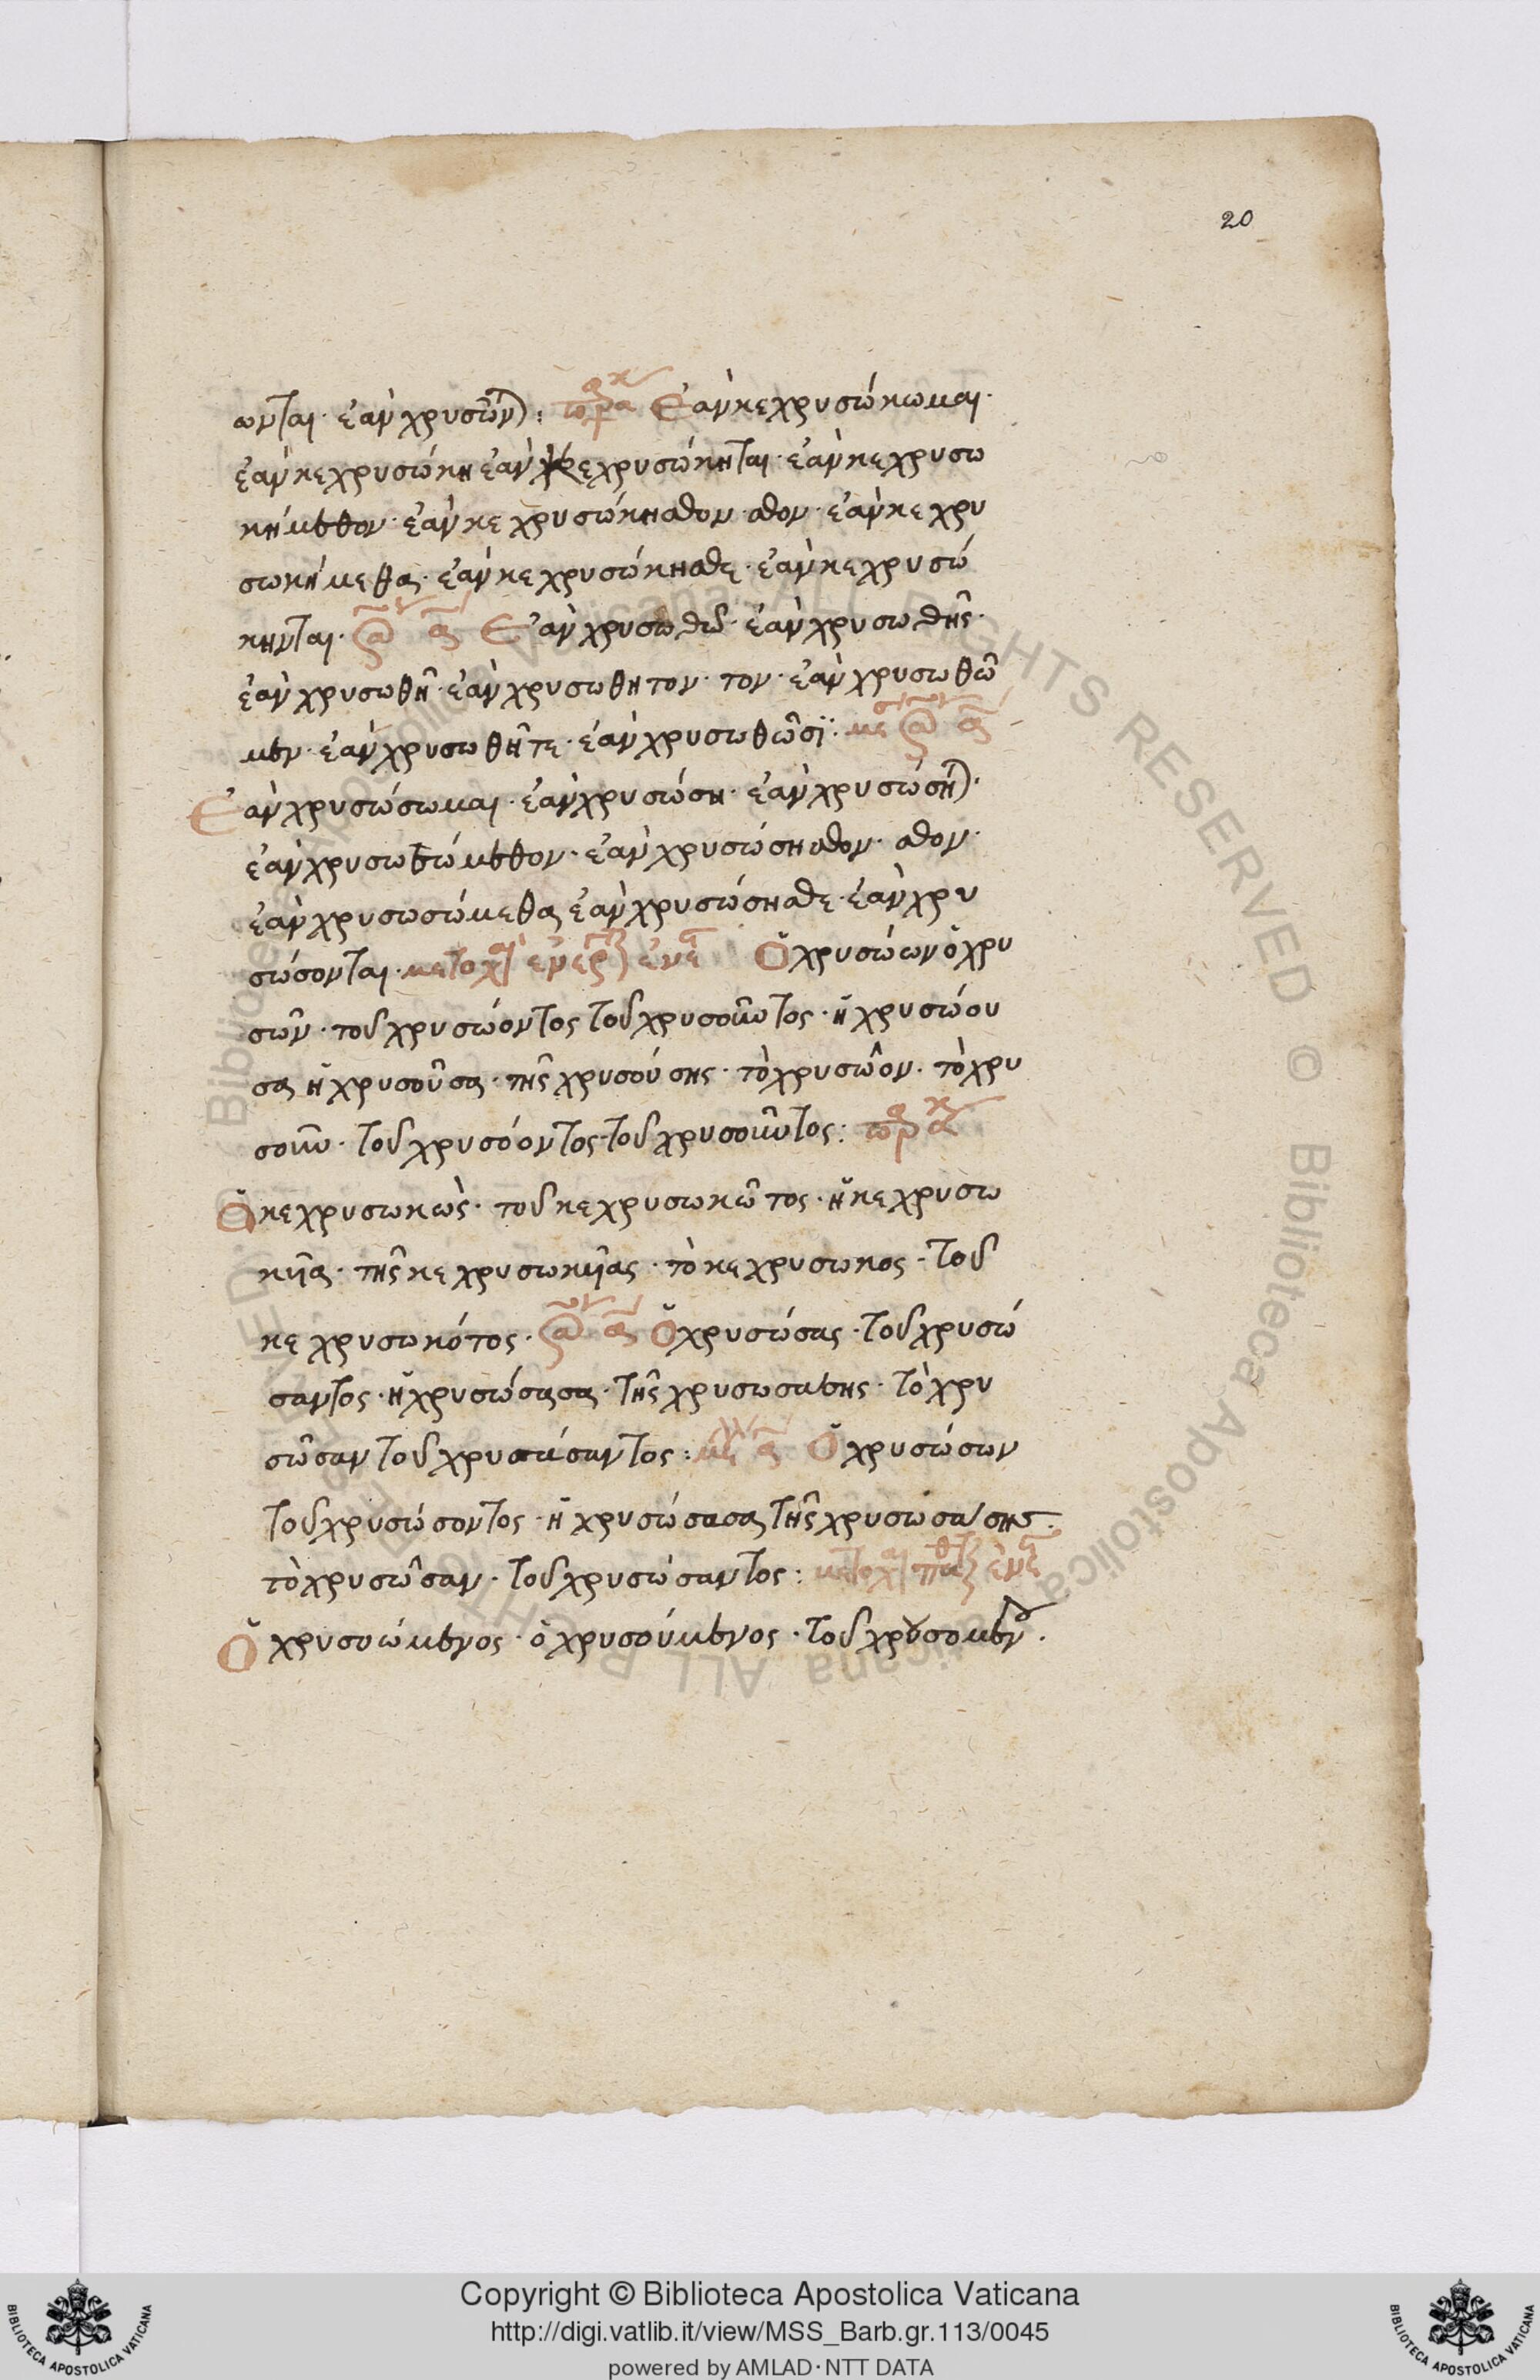 20
ωνται· ἐὰν χρυσῶνται: Ἐὰν κεχρυσώκωμαι·
ἐὰν κεχρυσώκη ἐὰν κεχρυσώκηται· ἐὰν κεχρυσω
κήμεθον· ἐὰν κεχρυσώκησθον· σθον· ἐὰν κεχρυ
σωκήμεθα· ἐὰν κεχρυσώκησθε· ἐὰν κεχρυσώ
κηνται· Ἐὰν χρυσωθῶ· ἐὰν χρυσωθῆς·
ἐὰν χρυσωθῆ· ἐὰν χρυσωθητον· τον· ἐὰν χρυσωθῶ
μεν· ἐὰν χρυσωθῆτε· ἐὰν χρυσωθῶσϊ:
Ἐὰν χρυσώσωμαι· ἐὰν χρυσώση· ἐὰν χρυσώσηται·
ἐὰν χρυσωσώμεθον· ἐὰν χρυσώσησθον· σθον·
ἐὰν χρυσωσώμεθα ἐὰν χρυσώσησθε· ἐὰν χρυ
σώσονται· μετοχαὶ Ὁ χρυσώων ὁ χρυ
σῶν· τοῦ χρυσώοντος τοῦ χρυσοῦντος· ἡ χρυσώου
σα ἡ χρυσοῦσα· τῆς χρυσούσης· τὸ χρυσῶον· τὸ χρυ
σοῦν· τοῦ χρυσόοντος τοῦ χρυσοῦντος:
Ὁ κεχρυσωκὼς· τοῦ κεχρυσωκῶτος· ἡ κεχρυσω
κυῖα· τῆς κεχρυσωκυῖας· τὸ κεχρυσωκος· τοῦ
κεχρυσωκότος· Ὁ χρυσώσας· τοῦ χρυσώ
σαντος· ἡ χρυσώσασα· τῆς χρυσωσασης· τὸ χρυ
σῶσαν τοῦ χρυσώσαντος: Ὁ χρυσώσων
τοῦ χρυσώσοντος· ἡ χρυσώσασα τῆς χρυσωσάσης·
τὸ χρυσῶσαν· τοῦ χρυσώσαντος:
Ὁ χρυσοώμενος· ὁ χρυσούμενος· τοῦ χρυσομένου·
Copyright © Biblioteca Apostolica Vaticana
http://digi.vatlib.it/view/MSS_Barb.gr.113/0045
powered by AMLAD·NTT DATA